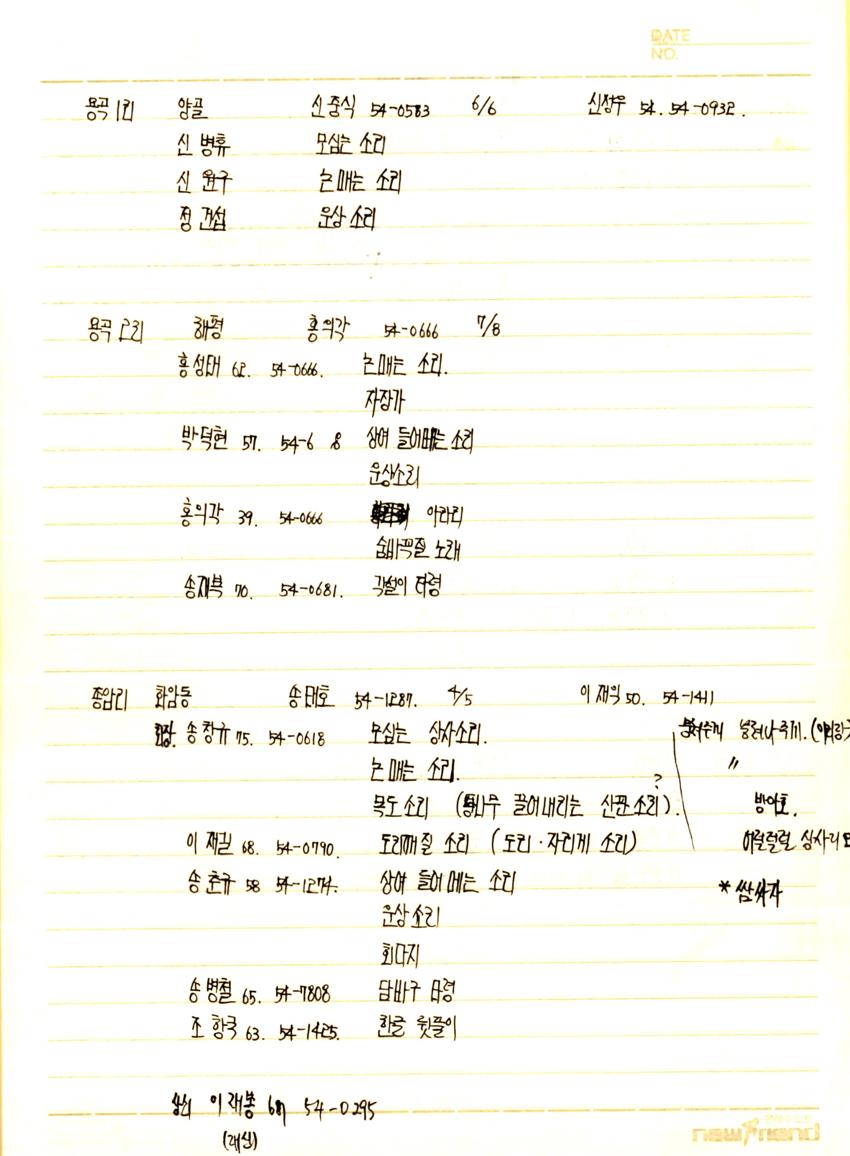 DATE
NO.
용곡 1리 양골 신중식 54-0583 6/6 신상우 54. 54-0932.
신병휴 모심는 소리
신윤구 논매는 소리
정건섭 운상 소리
용곡 2리 해평 홍의각 54-0666 7/8
홍성태 62. 54-0666. 논매는 소리.
자장가
박덕현 57. 54-6 8 상여 들어메는 소리
운상소리
홍의각 39. 54-0666 아라리
숨바꼭질 노래
송재복 70. 54-0681. 각설이 타령
종암리 화암동 송태호 54-1287. 4/5 이재익 50. 54-1411
회장. 송창규 75. 54-0618 모심는 상사소리. 넘겨나주게.
논매는 소리. 〃
목도소리 (통나무 끌어내리는 산판소리). ? 방아호.
이재길 68. 54-0790. 도리깨질 소리 (도리·자리게 소리) 어럴럴럴 상사리
송춘규 58 54-1274. 상여 들어메는 소리 * 쌈싸자
운상소리
회다지
송병철 65. 54-7808 담바구 타령
조항국 63. 54-1425. 한글 뒷풀이
이재봉 54-0295
newfriend